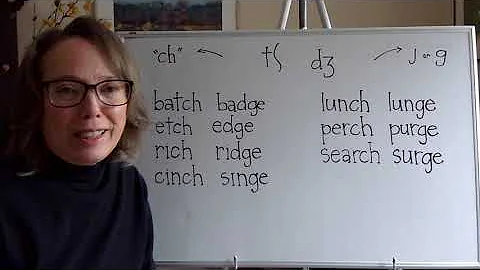 "ch" ← tʃ dʒ → J or g
batch badge lunch lunge
etch edge perch purge
rich ridge search surge
cinch singe